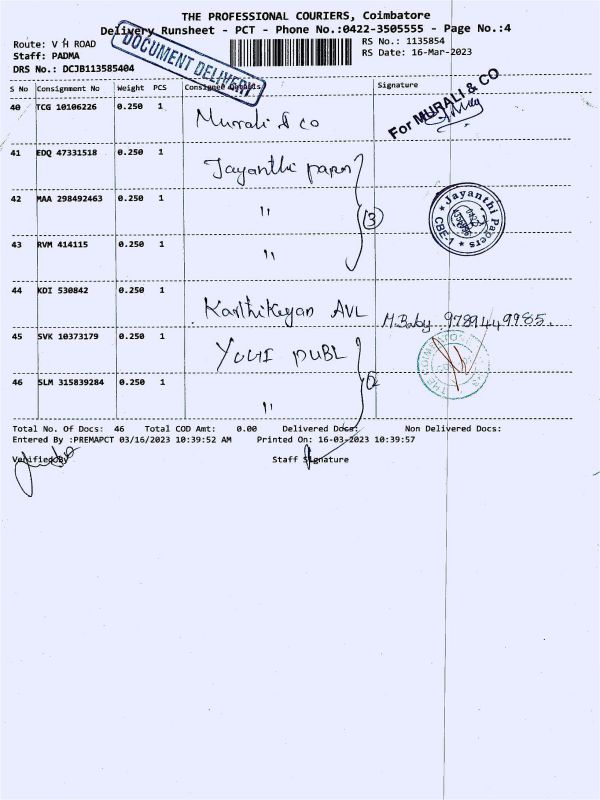 THE PROFESSIONAL COURIERS, Coimbatore
Delivery Runsheet - PCT - Phone No.:0422-3505555 - Page No.:4
Route: V H ROAD
RS No.: 1135854
Staff: PADMA
RS Date: 16-Mar-2023
DRS No.: DCJB113585404
DOCUMENT DELIVERY
S No Consignment No Weight PCS Consignee Details Signature
40 TCG 10106226 0.250 1 Murali & co
For MURALI & CO
41 EDQ 47331518 0.250 1 Jayanthi papers
42 MAA 298492463 0.250 1 " 3
★ Jayanthi Papers ★ CBE-1
43 RVM 414115 0.250 1 "
44 KDI 530842 0.250 1 Karthikeyan AVL M.Baby 9789449985.
45 SVK 10373179 0.250 1 YOGI PUBL
46 SLM 315839284 0.250 1 "
Total No. Of Docs: 46 Total COD Amt: 0.00 Delivered Docs: Non Delivered Docs:
Entered By :PREMAPCT 03/16/2023 10:39:52 AM Printed On: 16-03-2023 10:39:57
Verified By Staff Signature